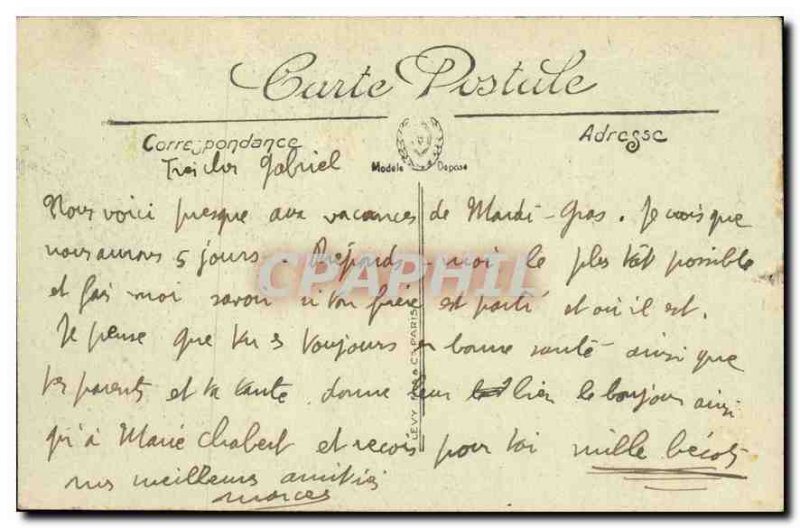 Carte Postale
Correspondance
Adresse
Modèle Déposé
Très cher Gabriel
Nous voici presque aux vacances de Mardi-Gras. Je crois que
nous aurons 5 jours. Réponds-moi le plus tôt possible
et fais moi savoir si ton frère est parti et où il est.
Je pense que tu es toujours en bonne santé ainsi que
tes parents et ta tante. donne leur bien le bonjour ainsi
qu'à Marie Chabert et reçois pour toi mille bécots
mes meilleures amitiés
CPAPHIL
LEVY & Cie PARIS